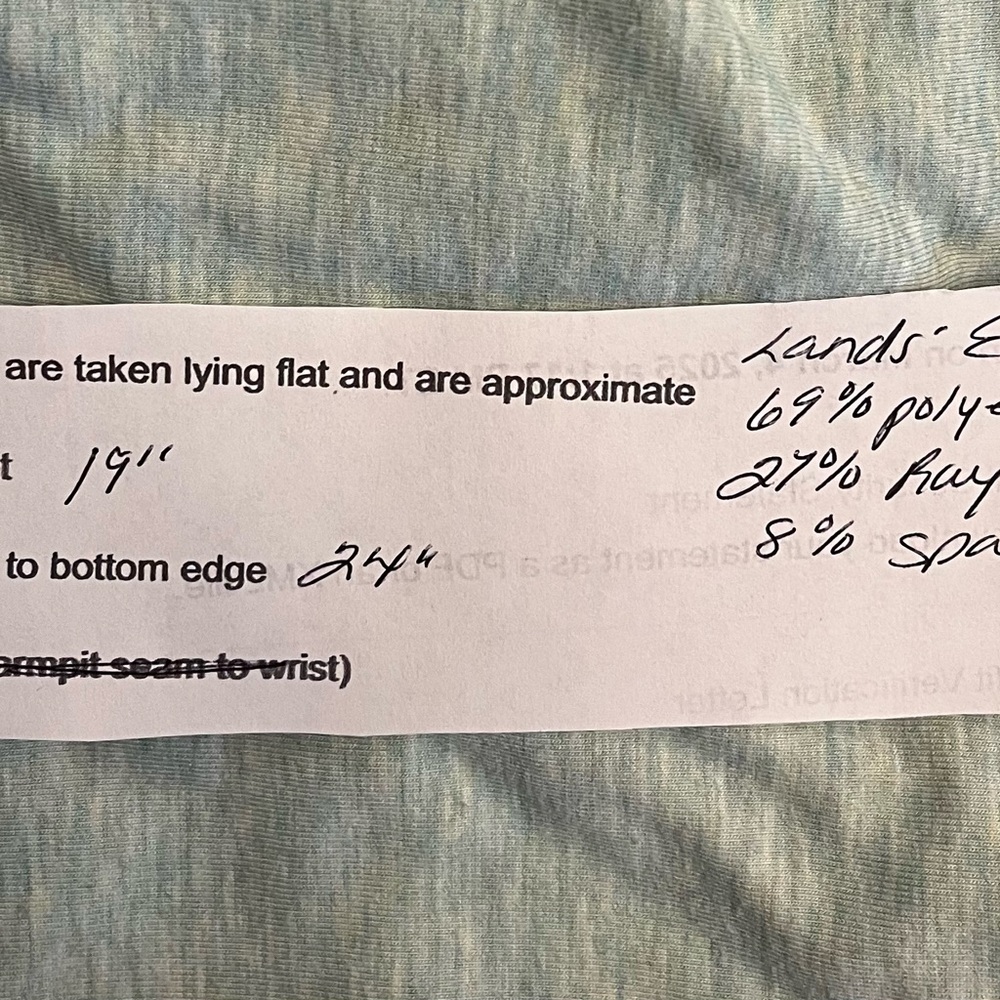 are taken lying flat and are approximate
t 19"
to bottom edge 24"
armpit seam to wrist)
Lands' E
69% polye
27% Ray
8% spa